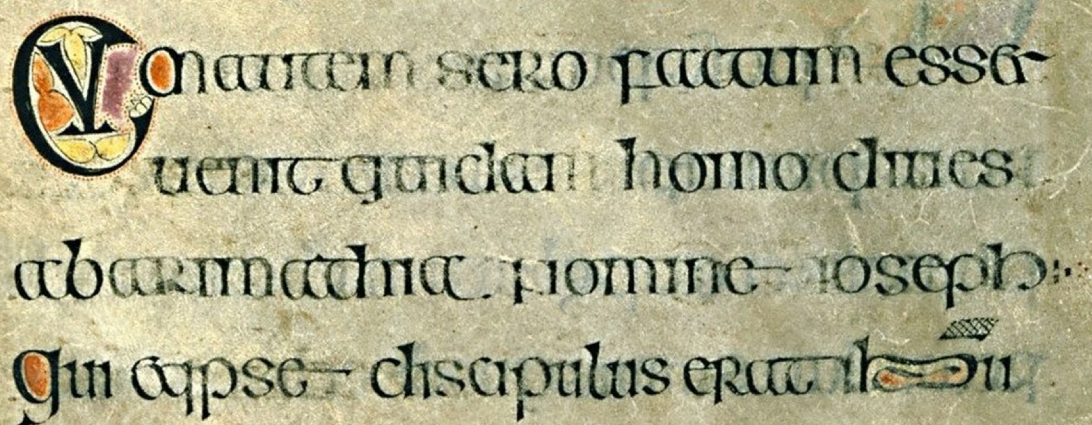 Cum autem sero factum esset
uenit quidam homo diues
ab arimathia nomine ioseph
qui et ipse discipulus erat ihu